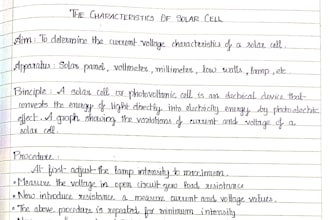 THE CHARACTERISTICS OF SOLAR CELL
Aim : To determine the current voltage characteristics of a solar cell.
Apparatus : Solar panel, voltmeter, millimeter, low watts, lamp, etc.
Principle : A solar cell or photovoltaic cell is an electrical device that
converts the energy of light directly into electricity energy by photoelectric
effect. A graph showing the variations of current and voltage of a
solar cell.
Procedure :
At first adjust the lamp intensity to maximum.
• Measure the voltage in open circuit load resistance
• Now introduce resistance & measure current and voltage values.
• The above procedure is repeated for minimum intensity